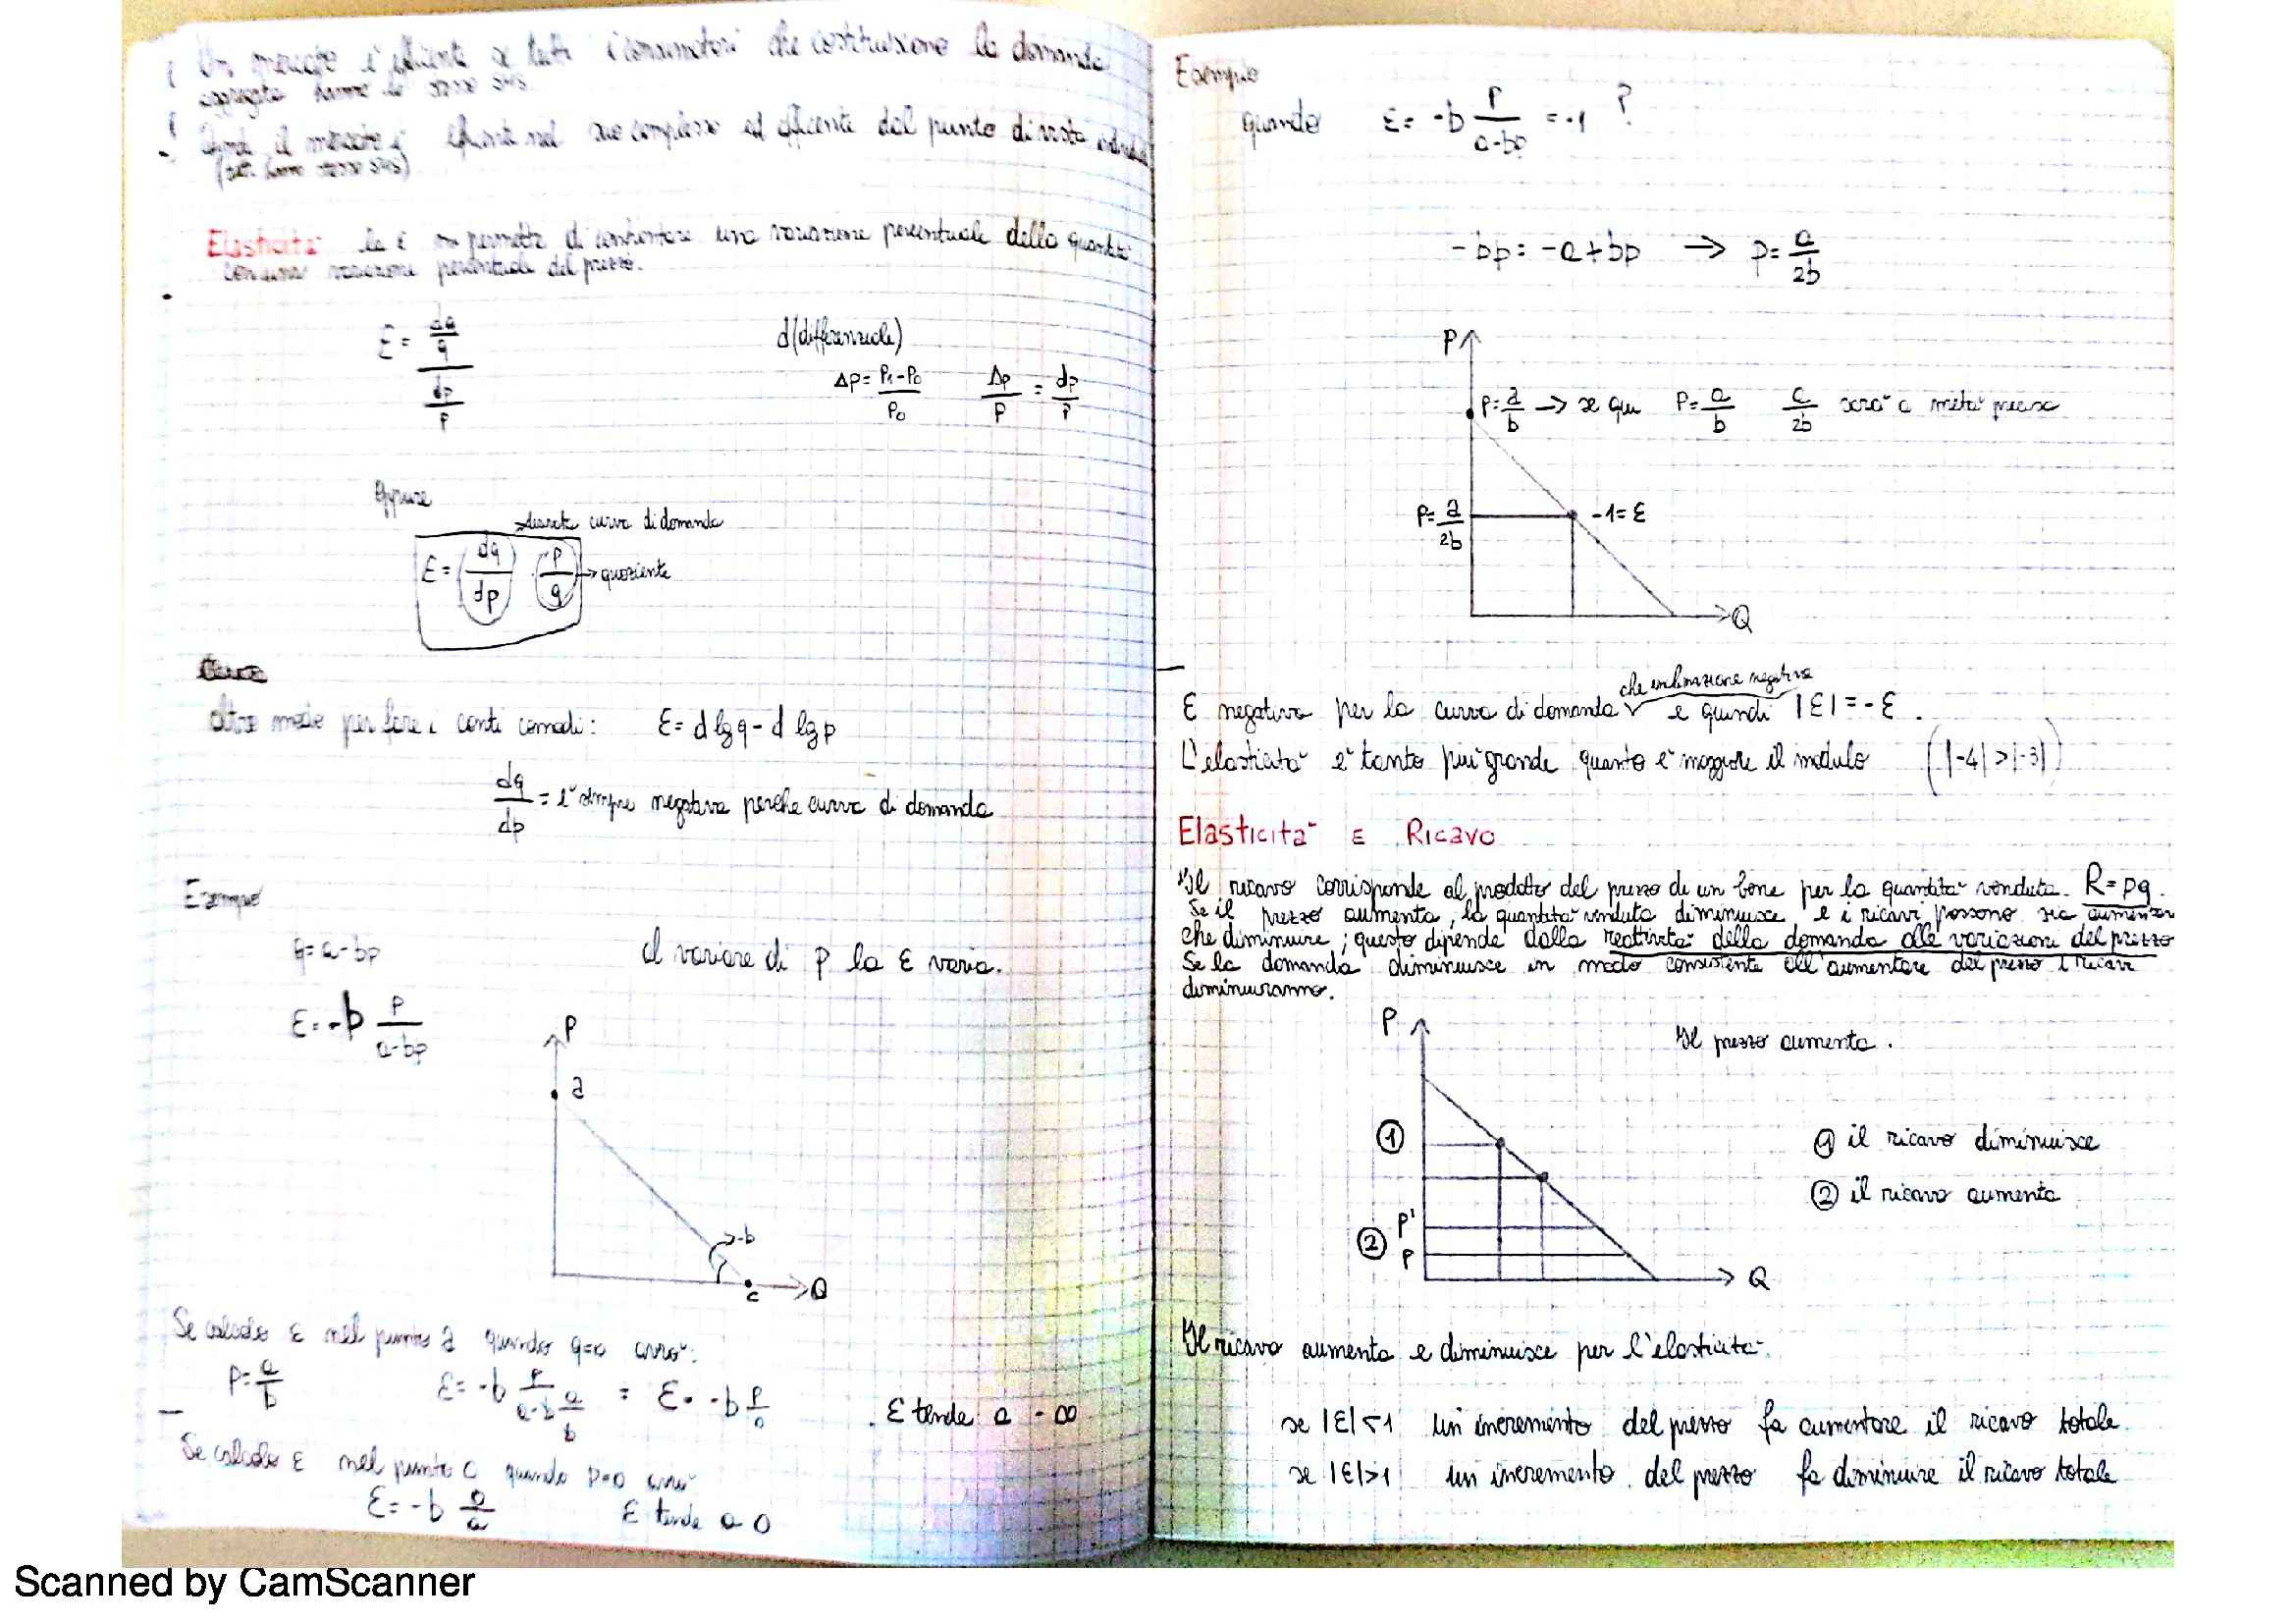 Un mercato è efficiente se tutti i consumatori che costituiscono la domanda
aggregata hanno lo stesso SMS.
Quindi il mercato è efficiente nel suo complesso ed efficiente dal punto di vista
(tutti hanno stesso SMS)
Elasticità la ε mi permette di confrontare una variazione percentuale della quantità
con una variazione percentuale del prezzo.
ε = (dq/q) / (dp/p)
d(differenziale)
Δp = (P1-P0)/P0    Δp/p = dp/p
Oppure
curva di domanda
ε = (dq/dp) · (p/q) → quoziente
altro modo per fare i conti comodi: ε = d lg q - d lg p
dq/dp = è sempre negativa perche curva di domanda
Esempio
q = a-bp    al variare di p la ε varia.
ε = -b p/(a-bp)
P
a
-b
c
Q
Se calcolo ε nel punto a quando q=0 avrò:
P = a/b    ε = -b p/(a-b a/b) = ε = -b p/0    ε tende a -∞
Se calcolo ε nel punto c quando p=0 avrò
ε = -b 0/a    ε tende a 0
Esempio
quando ε = -b p/(a-bp) = -1 ?
-bp = -a+bp → p = a/2b
P
P = a/b → se qui P = a/b a/2b sarà a metà precisa
P = a/2b
-1 = ε
Q
che inclinazione negativa
ε negativa per la curva di domanda e quindi |ε| = -ε.
L'elasticità è tanto più grande quanto è maggiore il modulo (|-4| > |-3|)
Elasticità E Ricavo
Il ricavo corrisponde al prodotto del prezzo di un bene per la quantità venduta. R = pq.
Se il prezzo aumenta, la quantità venduta diminuisce e i ricavi possono sia aumentar
che diminuire; questo dipende dalla reattività della domanda alle variazioni del prezzo
Se la domanda diminuisce in modo consistente all'aumentare del prezzo i ricavi
diminuiranno.
P
Il prezzo aumenta.
①
① il ricavo diminuisce
② il ricavo aumenta
② P'
P
Q
Il ricavo aumenta e diminuisce per l'elasticità.
se |ε| < 1 un incremento del prezzo fa aumentare il ricavo totale
se |ε| > 1 un incremento del prezzo fa diminuire il ricavo totale
Scanned by CamScanner